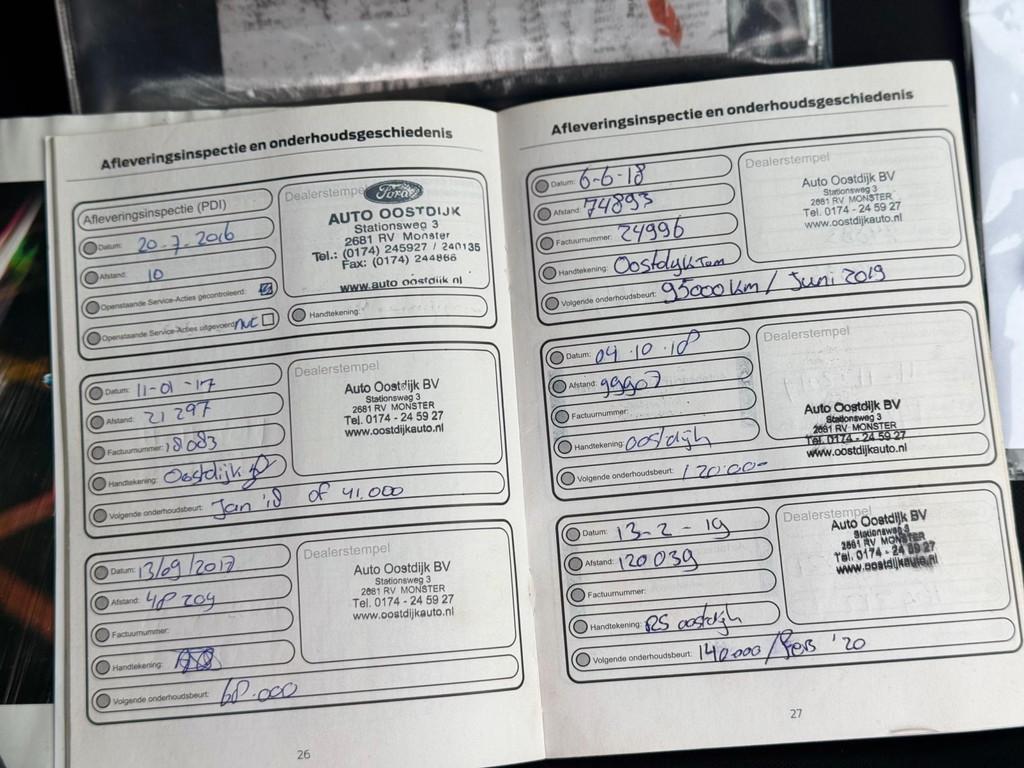 Afleveringsinspectie en onderhoudsgeschiedenis
Afleveringsinspectie (PDI)
Datum: 20-7-2016
Afstand: 10
Openstaande Service-Acties gecontroleerd:
Openstaande Service-Acties uitgevoerd
Dealerstempel
Ford
AUTO OOSTDIJK
Stationsweg 3
2681 RV Monster
Tel.: (0174) 245927 / 240135
Fax: (0174) 244866
www.auto oostdijk nl
Handtekening:
Datum: 11-01-17
Afstand: 21297
Factuurnummer: 18083
Handtekening: Oostdijk
Volgende onderhoudsbeurt: Jan '18 of 41.000
Dealerstempel
Auto Oostdijk BV
Stationsweg 3
2681 RV MONSTER
Tel. 0174 - 24 59 27
www.oostdijkauto.nl
Datum: 13/09/2017
Afstand: 48209
Factuurnummer:
Handtekening:
Volgende onderhoudsbeurt: 68.000
Dealerstempel
Auto Oostdijk BV
Stationsweg 3
2681 RV MONSTER
Tel. 0174 - 24 59 27
www.oostdijkauto.nl
26
Afleveringsinspectie en onderhoudsgeschiedenis
Datum: 6-6-18
Afstand: 74893
Factuurnummer: 24996
Handtekening: Oostdijk
Volgende onderhoudsbeurt: 95000 km / Juni 2019
Dealerstempel
Auto Oostdijk BV
Stationsweg 3
2681 RV MONSTER
Tel. 0174 - 24 59 27
www.oostdijkauto.nl
Datum: 04.10.18
Afstand: 99907
Factuurnummer:
Handtekening: oostdijk
Volgende onderhoudsbeurt: 120.00-
Dealerstempel
Auto Oostdijk BV
Stationsweg 3
2681 RV MONSTER
Tel. 0174 - 24 59 27
www.oostdijkauto.nl
Datum: 13-2-19
Afstand: 120039
Factuurnummer:
Handtekening: RS oostdijk
Volgende onderhoudsbeurt: 140.000 / '20
Dealerstempel
Auto Oostdijk BV
Stationsweg 3
2681 RV MONSTER
Tel. 0174 - 24 59 27
www.oostdijkauto.nl
27